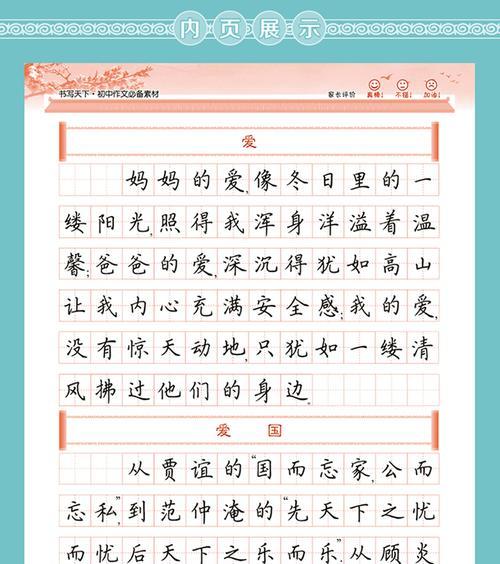 内页展示
书写天下·初中作文必备素材
家长评价 真棒! 不错! 加油!
爱
妈妈的爱,像冬日里的一
缕阳光,照得我浑身洋溢着温
馨;爸爸的爱,深沉得犹如高山
让我内心充满安全感;我的爱,
没有惊天动地,只犹如一缕清
风拂过他们的身边.
爱 国
从贾谊的“国而忘家,公而
忘私”,到范仲淹的“先天下之忧
而忧后天下之乐而乐”.从顾炎